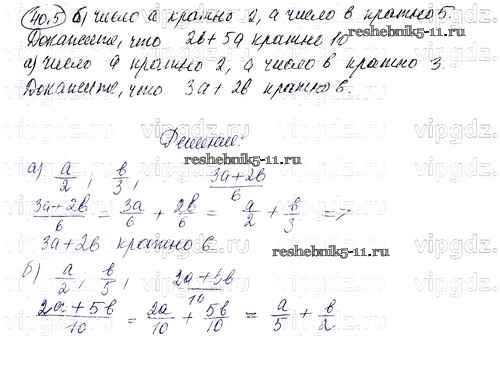 40.5 б) число а кратно 2, а число в кратно 5.
Докажите, что 2в + 5а кратно 10
а) число а кратно 2, а число в кратно 3.
Докажите, что 3а + 2в кратно 6.
Решение:
reshebnik5-11.ru
а) а/2 ; в/3 , (3а+2в)/6
reshebnik5-11.ru
(3а+2в)/6 = 3а/6 + 2в/6 = а/2 + в/3 =>
3а+2в кратно 6
reshebnik5-11.ru
б) а/2 ; в/5 , (2а+5в)/10
reshebnik5-11.ru
(2а+5в)/10 = 2а/10 + 5в/10 = а/5 + в/2
vipgdz.ru vipgdz.ru vipgdz.ru